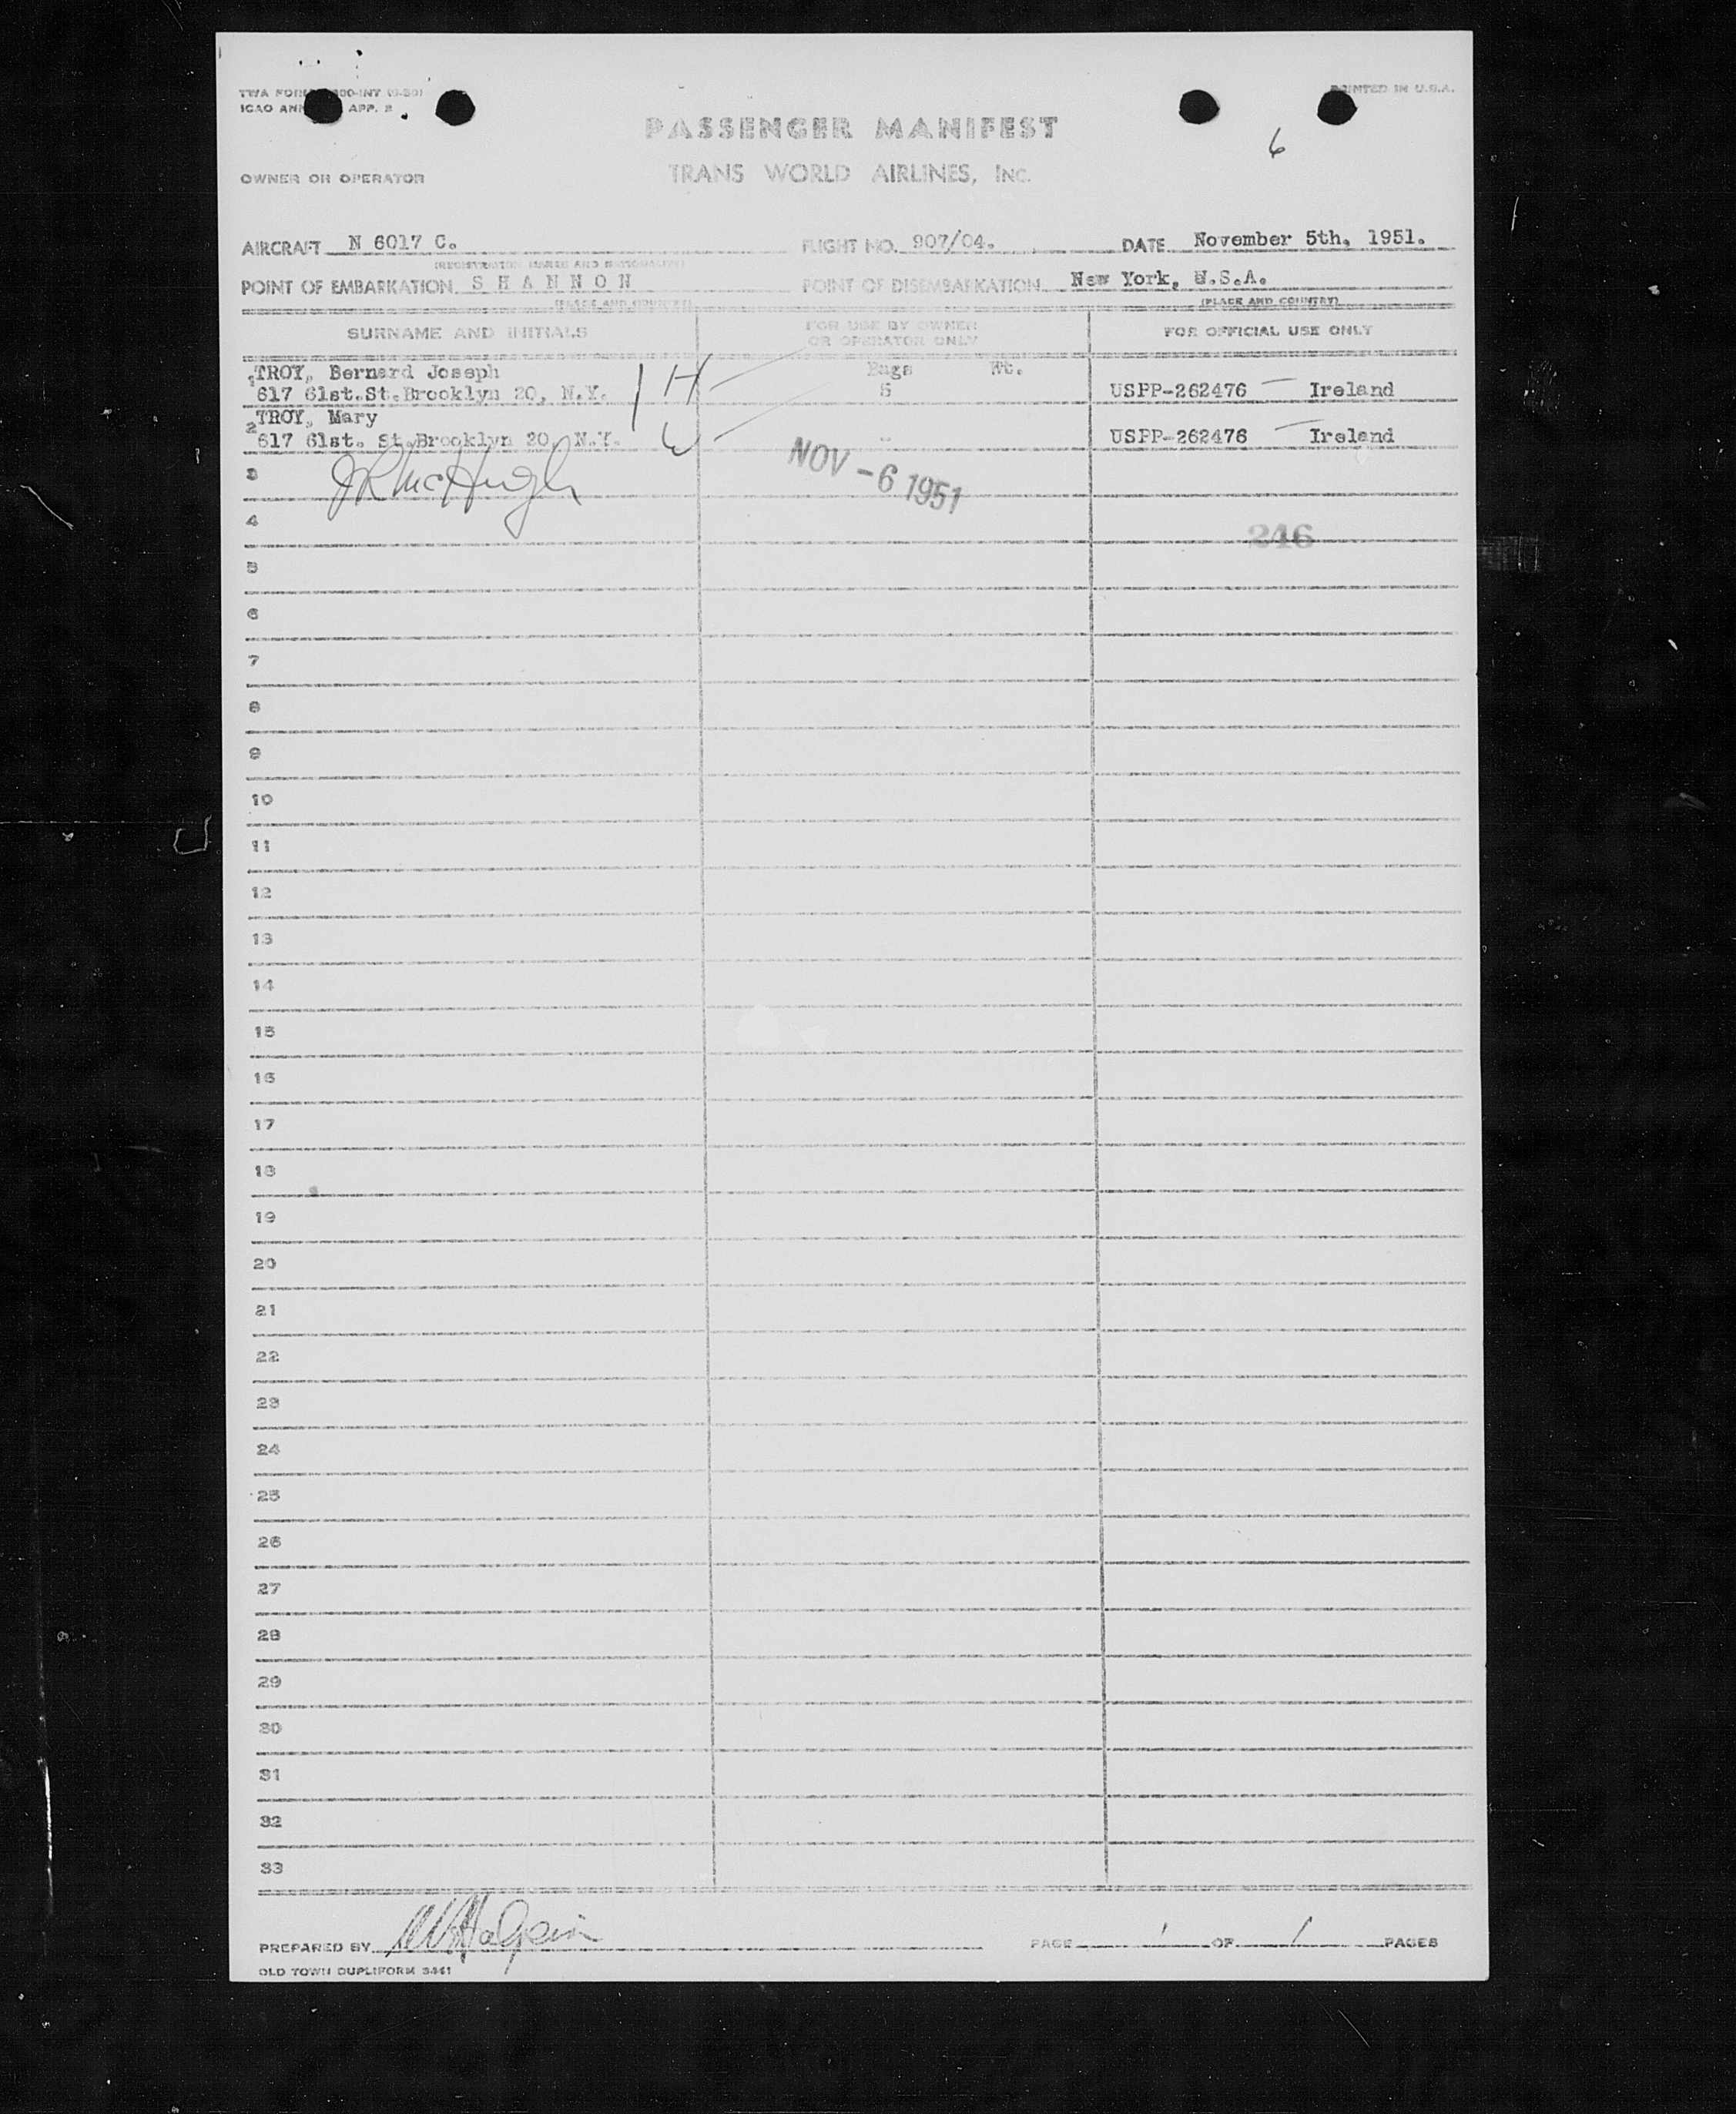 TWA FORM 300-INT (1-50)
ICAO ANN APP. 2
PRINTED IN U.S.A.
PASSENGER MANIFEST
6
OWNER OR OPERATOR TRANS WORLD AIRLINES, INC.
AIRCRAFT N 6017 C. FLIGHT NO. 907/04. DATE November 5th, 1951.
(REGISTRATION MARKS AND NATIONALITY)
POINT OF EMBARKATION S H A N N O N POINT OF DISEMBARKATION New York, U.S.A.
(PLACE AND COUNTRY) (PLACE AND COUNTRY)
SURNAME AND INITIALS FOR USE BY OWNER OR OPERATOR ONLY FOR OFFICIAL USE ONLY
1 TROY, Bernard Joseph Bags Wt.
617 61st.St.Brooklyn 20, N.Y. H 5 USPP-262476 Ireland
TROY, Mary
2 617 61st. St.Brooklyn 20, N.Y. W USPP-262476 Ireland
3 JR McHugh NOV -6 1951
4 246
5
6
7
8
9
10
11
12
13
14
15
16
17
18
19
20
21
22
23
24
25
26
27
28
29
30
31
32
33
PREPARED BY PAGE 1 OF 1 PAGES
OLD TOWN DUPLIFORM 3441